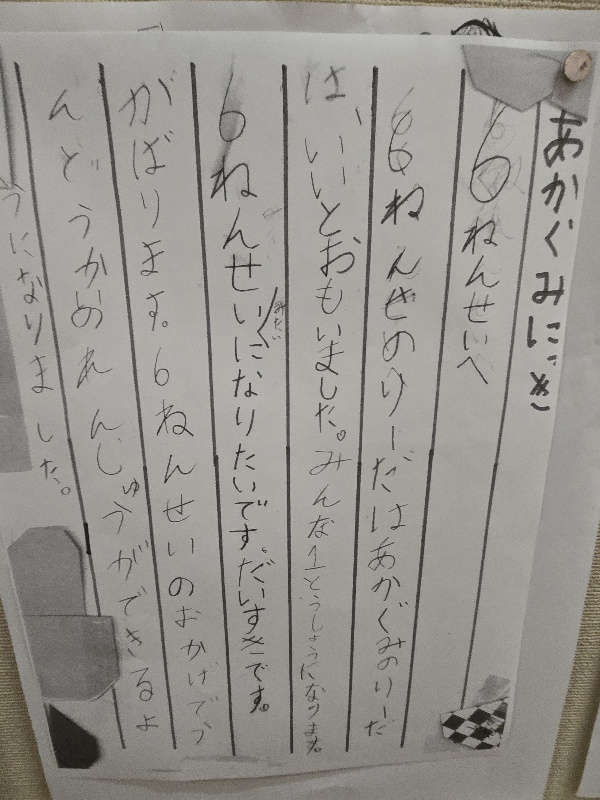 あかぐみにっき
6ねんせいへ
6ねんせのりーだはあかぐみのりーだ
は、いいとおもいました。みんな1とうしょうになります。
6ねんせいみたいになりたいです。だいすきです。
がばります。6ねんせいのおかげでう
んどうかのれんしゅうができるよ
うになりました。